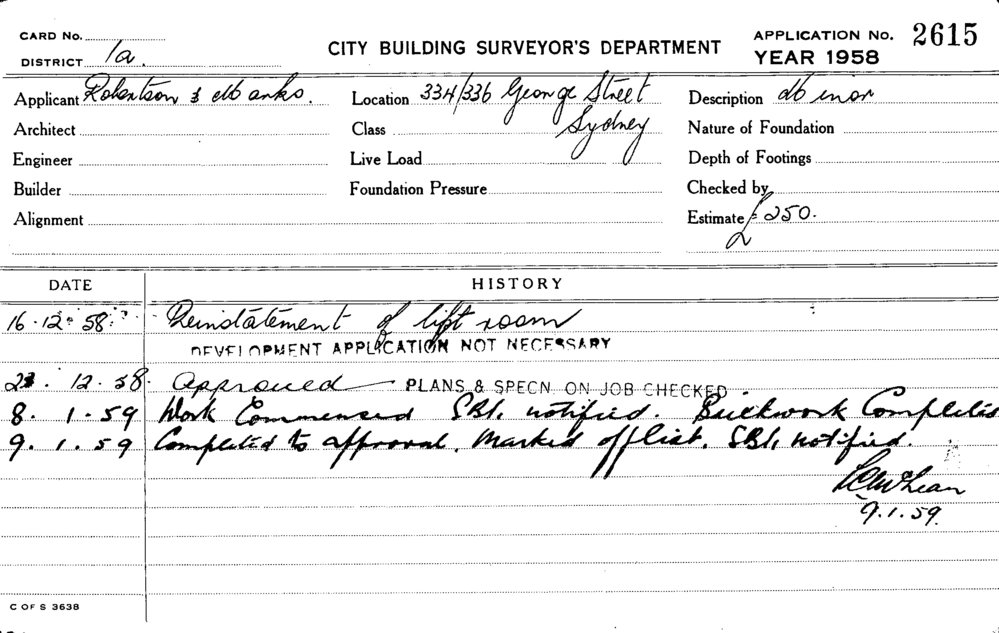 CARD No.
DISTRICT 1a.
CITY BUILDING SURVEYOR'S DEPARTMENT
APPLICATION No. 2615
YEAR 1958
Applicant Robertson & Marks. Location 334/336 George Street Description Minor
Architect Class Sydney Nature of Foundation
Engineer Live Load Depth of Footings
Builder Foundation Pressure Checked by
Alignment Estimate £250.
DATE HISTORY
16.12.58. Reinstatement of lift room
DEVELOPMENT APPLICATION NOT NECESSARY
23.12.58. Approved PLANS & SPECN ON JOB CHECKED
8. 1. 59 Work Commenced SBI. notified. Brickwork Completed
9. 1. 59 Completed to approval. Marked off list. SBI. notified.
McLean
9.1.59.
C OF S 3638